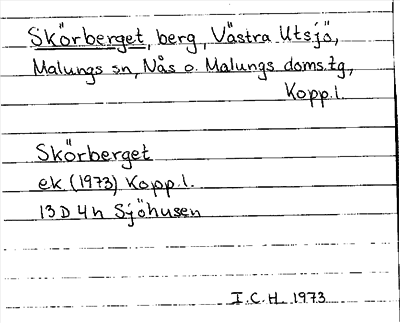 Skörberget, berg, Västra Utsjö,
Malungs sn, Nås o. Malungs doms.tg,
Kopp.l.
Skörberget
ek (1973) Kopp.l.
13D4h Sjöhusen
I.C.H. 1973